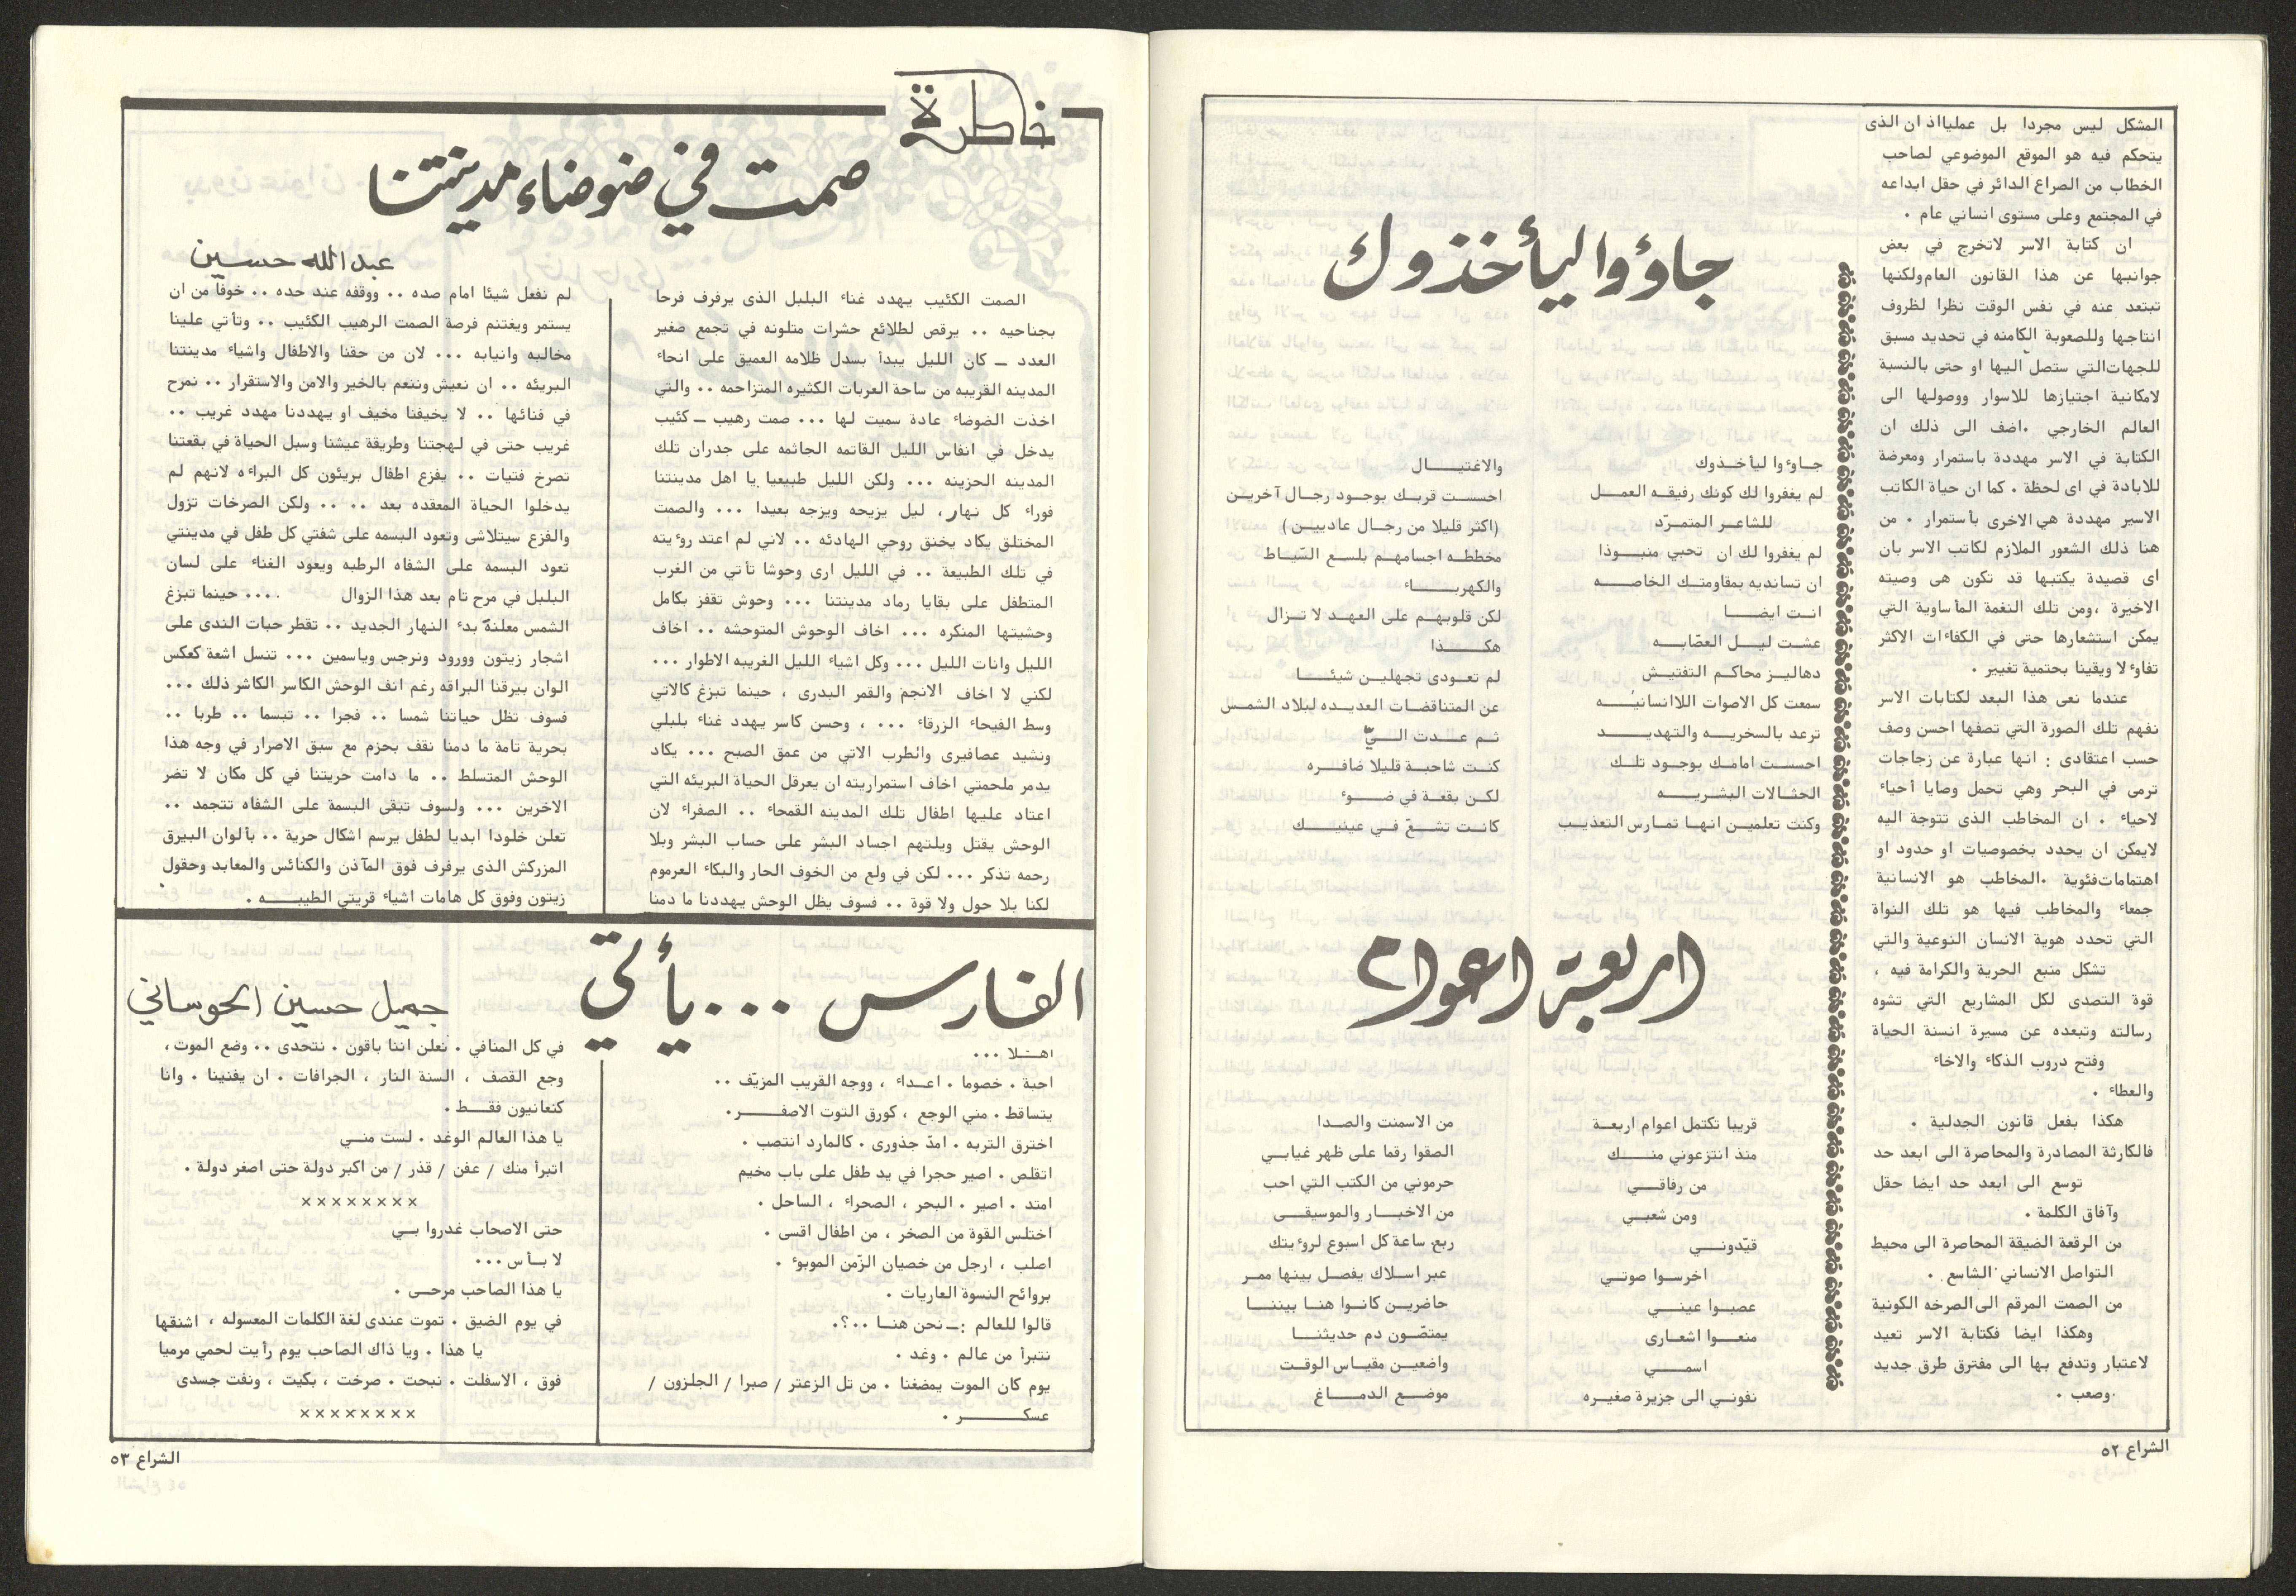 المشكل ليس مجردا بل عمليااذ ان الذى
يتحكم فيه هو الموقع الموضوعي لصاحب
الخطاب من الصراع الدائر في حقل ابداعه
في المجتمع وعلى مستوى انساني عام .
ان كتابة الاسر لاتخرج في بعض
جوانبها عن هذا القانون العام ولكنها
تبتعد عنه في نفس الوقت نظرا لظروف
انتاجها وللصعوبة الكامنه في تحديد مسبق
للجهات التي ستصل اليها او حتى بالنسبة
لامكانية اجتيازها للاسوار ووصولها الى
العالم الخارجي . اضف الى ذلك ان
الكتابة في الاسر مهددة باستمرار ومعرضة
للابادة في اى لحظة . كما ان حياة الكاتب
الاسير مهددة هي الاخرى بأستمرار . من
هنا ذلك الشعور الملازم لكاتب الاسر بان
اى قصيدة يكتبها قد تكون هى وصيته
الاخيرة ، ومن تلك النغمة المأساوية التي
يمكن استشعارها حتى في الكفاءات الاكثر
تفاوءلا ويقينا بحتمية تغيير .
عندما نعى هذا البعد لكتابات الاسر
نفهم تلك الصورة التي تصفها احسن وصف
حسب اعتقادى : انها عبارة عن زجاجات
ترمى في البحر وهي تحمل وصايا أحياء
لاحياء . ان المخاطب الذى تتوجة اليه
لايمكن ان يحدد بخصوصيات او حدود او
اهتمامات فئوية . المخاطب هو الانسانية
جمعاء والمخاطب فيها هو تلك النواة
التي تحدد هوية الانسان النوعية والتي
تشكل منبع الحرية والكرامة فيه ،
قوة التصدى لكل المشاريع التي تشوه
رسالته وتبعده عن مسيرة انسنة الحياة
وفتح دروب الذكاء والاخاء
والعطاء .
هكذا بفعل قانون الجدلية .
فالكارثة المصادرة والمحاصرة الى ابعد حد
توسع الى ابعد حد ايضا حقل
وآفاق الكلمة .
من الرقعة الضيقة المحاصرة الى محيط
التواصل الانساني الشاسع .
من الصمت المرقم الى الصرخه الكونية
وهكذا ايضا فكتابة الاسر تعيد
لاعتبار وتدفع بها الى مفترق طرق جديد
وصعب .
جاؤوا ليأخذوك
جاوءوا ليأخذوك
لم يغفروا لك كونك رفيقه العمل
للشاعر المتمرّد
لم يغفروا لك ان تحبي منبوذا
ان تسانديه بمقاومتك الخاصه
انت ايضا
عشت ليل العصّابه
دهاليز محاكم التفتيش
سمعت كل الاصوات اللاانسانيُه
ترعد بالسخريه والتهديد
احسست امامك بوجود تلك
الحثالات البشريه
وكنت تعلمين انها تمارس التعذيب
والاغتيال
احسست قربك بوجود رجال آخرين
(اكثر قليلا من رجال عاديين)
مخططه اجسامهم بلسع السّياط
والكهرباء
لكن قلوبهم على العهد لا تزال
هكذا
لم تعودى تجهلين شيئا
عن المتناقضات العديده لبلاد الشمس
ثم عدت اليّ
كنت شاحبة قليلا ضافره
لكن بقعة في ضوء
كانت تشعّ في عينيك
اربعة اعوام
قريبا تكتمل اعوام اربعة
منذ انتزعوني منك
من رفاقي
ومن شعبي
قيّدوني
اخرسوا صوتي
عصبوا عيني
منعوا اشعارى
اسمي
نفوني الى جزيرة صغيره
من الاسمنت والصدا
الصقوا رقما على ظهر غيابي
حرموني من الكتب التي احب
من الاخبار والموسيقى
ربع ساعة كل اسبوع لروءيتك
عبر اسلاك يفصل بينها ممر
حاضرين كانوا هنا بيننا
يمتصّون دم حديثنا
واضعين مقياس الوقت
موضع الدماغ
الشراع ٥٢
خاطرة
صمت في ضوضاء مدينتنا
عبدالله حسين
الصمت الكئيب يهدد غناء البلبل الذى يرفرف فرحا
بجناحيه .. يرقص لطلائع حشرات متلونه في تجمع صغير
العدد ــ كان الليل يبدأ بسدل ظلامه العميق على انحاء
المدينه القريبه من ساحة العربات الكثيره المتزاحمه .. والتي
اخذت الضوضاء عادة سميت لها ... صمت رهيب ــ كئيب
يدخل في انفاس الليل القاتمه الجاثمه على جدران تلك
المدينه الحزينه ... ولكن الليل طبيعيا يا اهل مدينتنا
فوراء كل نهار، ليل يزيحه ويزجه بعيدا ... والصمت
المختلق يكاد يخنق روحي الهادئه .. لاني لم اعتد روءيته
في تلك الطبيعة .. في الليل ارى وحوشا تأتي من الغرب
المتطفل على بقايا رماد مدينتنا ... وحوش تقفز بكامل
وحشيتها المنكره ... اخاف الوحوش المتوحشه .. اخاف
الليل وانات الليل ... وكل اشياء الليل الغريبه الاطوار ...
لكني لا اخاف الانجم والقمر البدرى ، حينما تبزغ كالاتي
وسط الفيحاء الزرقاء ... ، وحسن كاسر يهدد غناء بلبلي
ونشيد عصافيرى والطرب الاتي من عمق الصبح ... يكاد
يدمر ملحمتي اخاف استمراريته ان يعرقل الحياة البريئه التي
اعتاد عليها اطفال تلك المدينه القمحاء .. الصفراء لان
الوحش يقتل ويلتهم اجساد البشر على حساب البشر وبلا
رحمه تذكر ... لكن في ولع من الخوف الحار والبكاء العرموم
لكنا بلا حول ولا قوة .. فسوف يظل الوحش يهددنا ما دمنا
لم نفعل شيئا امام صده .. ووقفه عند حده .. خوفا من ان
يستمر ويغتنم فرصة الصمت الرهيب الكئيب .. وتأتي علينا
مخالبه وانيابه ... لان من حقنا والاطفال واشياء مدينتنا
البريئه .. ان نعيش وننعم بالخير والامن والاستقرار .. نمرح
في فنائها .. لا يخيفنا مخيف او يهددنا مهدد غريب ..
غريب حتى في لهجتنا وطريقة عيشنا وسبل الحياة في بقعتنا
تصرخ فتيات .. يفزع اطفال بريئون كل البراءه لانهم لم
يدخلوا الحياة المعقده بعد .. .. ولكن الصرخات تزول
والفزع سيتلاشى وتعود البسمه على شفتي كل طفل في مدينتي
تعود البسمه على الشفاه الرطبه ويعود الغناء على لسان
البلبل في مرح تام بعد هذا الزوال .... حينما تبزغ
الشمس معلنة بدء النهار الجديد .. تقطر حبات الندى على
اشجار زيتون وورود ونرجس وياسمين ... تنسل اشعة كعكس
الوان بيرقنا البراقه رغم انف الوحش الكاسر الكاشر ذلك ...
فسوف تظل حياتنا شمسا .. فجرا .. تبسما .. طربا ..
بحرية تامة ما دمنا نقف بحزم مع سبق الاصرار في وجه هذا
الوحش المتسلط .. ما دامت حريتنا في كل مكان لا تضر
الاخرين ... ولسوف تبقى البسمة على الشفاه تتجمد ..
تعلن خلودا ابديا لطفل يرسم اشكال حرية .. بألوان البيرق
المزركش الذى يرفرف فوق المآذن والكنائس والمعابد وحقول
زيتون وفوق كل هامات اشياء قريتي الطيبه .
الفارس ... يأتي
جميل حسين الحوساني
اهلا ...
احبة . خصوما . اعداء ، ووجه القريب المزيّف ..
يتساقط . مني الوجع ، كورق التوت الاصفر .
اخترق التربه . امدّ جذورى . كالمارد انتصب .
اتقلص . اصير حجرا في يد طفل على باب مخيم
امتد . اصير . البحر ، الصحراء ، الساحل .
اختلس القوة من الصخر ، من اطفال اقسى .
اصلب ، ارجل من خصيان الزّمن الموبوء .
بروائح النسوة العاريات .
قالوا للعالم :ــ نحن هنا ..؟.
نتبرأ من عالم . وغد .
يوم كان الموت يمضغنا . من تل الزعتر / صبرا / الجلزون /
عسكر .
في كل المنافي . نعلن اننا باقون . نتحدى .. وضع الموت ،
وجع القصف ، السنة النار ، الجرافات . ان يفنينا . وانا
كنعانيون فقط .
يا هذا العالم الوغد . لست مني
اتبرأ منك / عفن / قذر / من اكبر دولة حتى اصغر دولة .
××××××××
حتى الاصحاب غدروا بي
لا بأس ...
يا هذا الصاحب مرحى .
في يوم الضيق . تموت عندى لغة الكلمات المعسوله ، اشنقها
يا هذا . ويا ذاك الصاحب يوم رأيت لحمي مرميا
فوق ، الاسفلت . نبحت . صرخت ، بكيت ، ونفت جسدى
××××××××
الشراع ٥٣